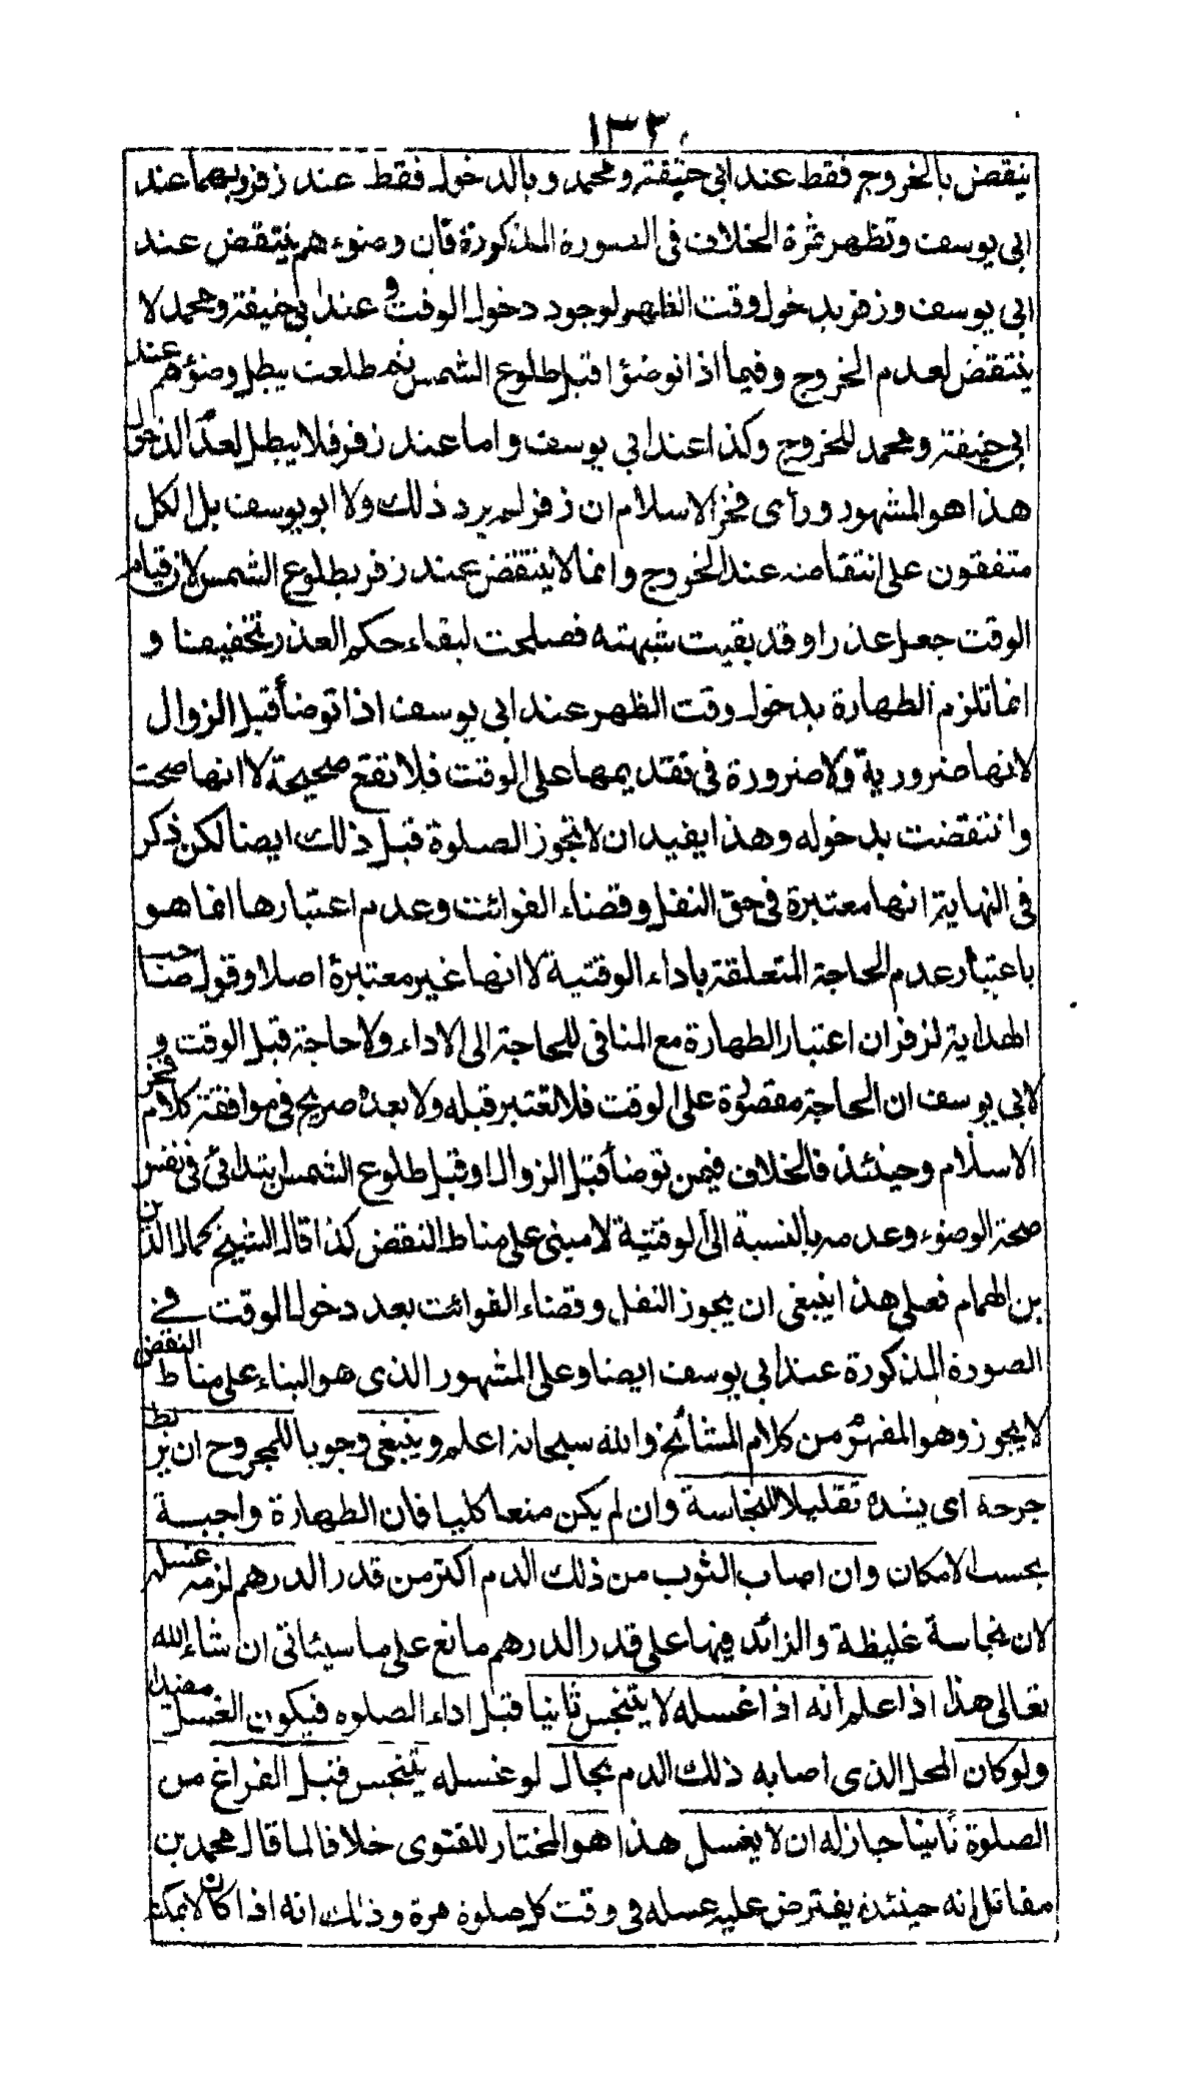 ١٣٢
ينقض بالخروج فقط عند ابى حنيفة ومحمد وبالدخول فقط عند زفر وبهما عند
ابى يوسف وتظهر ثمرة الخلاف فى الصورة المذكورة فان وضوءهم ينتقض عند
ابى يوسف وزفر بدخول وقت الظهر لوجود دخول الوقت وعند ابى حنيفة ومحمد لا
ينتقض لعدم الخروج وفيما اذا توضؤا قبل طلوع الشمس ثم طلعت يبطل وضوءهم عند
ابى حنيفة ومحمد للخروج وكذا عند ابي يوسف واما عند زفر فلا يبطل لعدم الدخول
هذا هو المشهور ورأى فخر الاسلام ان زفر لم يرد ذلك ولا ابو يوسف بل الكل
متفقون على انتقاضه عند الخروج وانما لا ينتقض عند زفر بطلوع الشمس لان قيام
الوقت جعل عذرا وقد بقيت شبهته فصلحت لبقاء حكم العذر تخفيفا و
انما تلزم الطهارة بدخول وقت الظهر عند ابى يوسف اذا توضأ قبل الزوال
لانها ضرورية ولا ضرورة فى تقديمها على الوقت فلا تقع صحيحة لا انها صحت
وانتقضت بدخوله وهذا يفيد ان لا تجوز الصلوة قبل ذلك ايضا لكن ذكر
فى النهاية انها معتبرة فى حق النفل وقضاء الفوائت وعدم اعتبارها انما هو
باعتبار عدم الحاجة المتعلقة باداء الوقتية لا انها غير معتبرة اصلا وقول صاحب
الهداية لزفر ان اعتبار الطهارة مع المنافى للحاجة الى الاداء ولا حاجة قبل الوقت و
لابى يوسف ان الحاجة مقصورة على الوقت فلا تعتبر قبله ولا بعده صريح فى موافقة كلام فخر
الاسلام وحينئذ فالخلاف فيمن توضأ قبل الزوال او قبل طلوع الشمس ابتدائى فى نفس
صحة الوضوء وعدمه بالنسبة الى الوقتية لا مبنى على مناط النقض كذا قال الشيخ كمال الدين
بن الهمام فعلى هذا ينبغى ان يجوز النفل وقضاء الفوائت بعد دخول الوقت فى
الصورة المذكورة عند ابى يوسف ايضا وعلى المشهور الذى هو البناء على مناط النقض
لا يجوز وهو المفهوم من كلام المشائخ والله سبحانه اعلم وينبغى وجوبا للمجروح ان يربط
جرحه اى يشده تقليلا للنجاسة وان لم يكن منعا كليا فان الطهارة واجبة
بحسب الامكان وان اصاب الثوب من ذلك الدم اكثر من قدر الدرهم لزمه غسله
لان نجاسة غليظة والزائد فيها على قدر الدرهم مانع على ما سيئاتى ان شاء الله
تعالى هذا اذا علم انه اذا غسله لا يتنجس ثانيا قبل اداء الصلوه فيكون الغسل مفيدا
ولو كان المحل الذى اصابه ذلك الدم بحال لو غسله يتنجس قبل الفراغ من
الصلوة ثانيا جاز له ان لا يغسل هذا هو المختار للفتوى خلافا لما قال محمد بن
مقاتل انه حينئذ يفترض عليه غسله فى وقت كل صلوة مرة وذلك انه اذا كان لا يمكنه